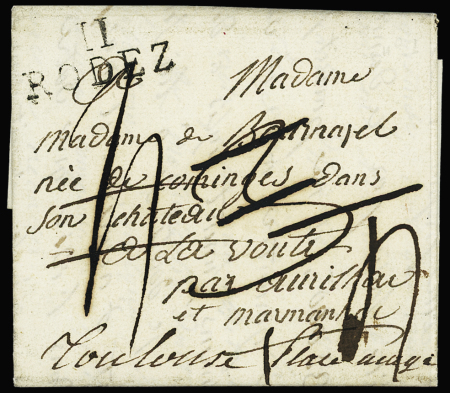 11
RODEZ
A Madame
madame de
née de cominges dans
son chateau
de La voute
par aurillac
et marmanhac
Toulouse